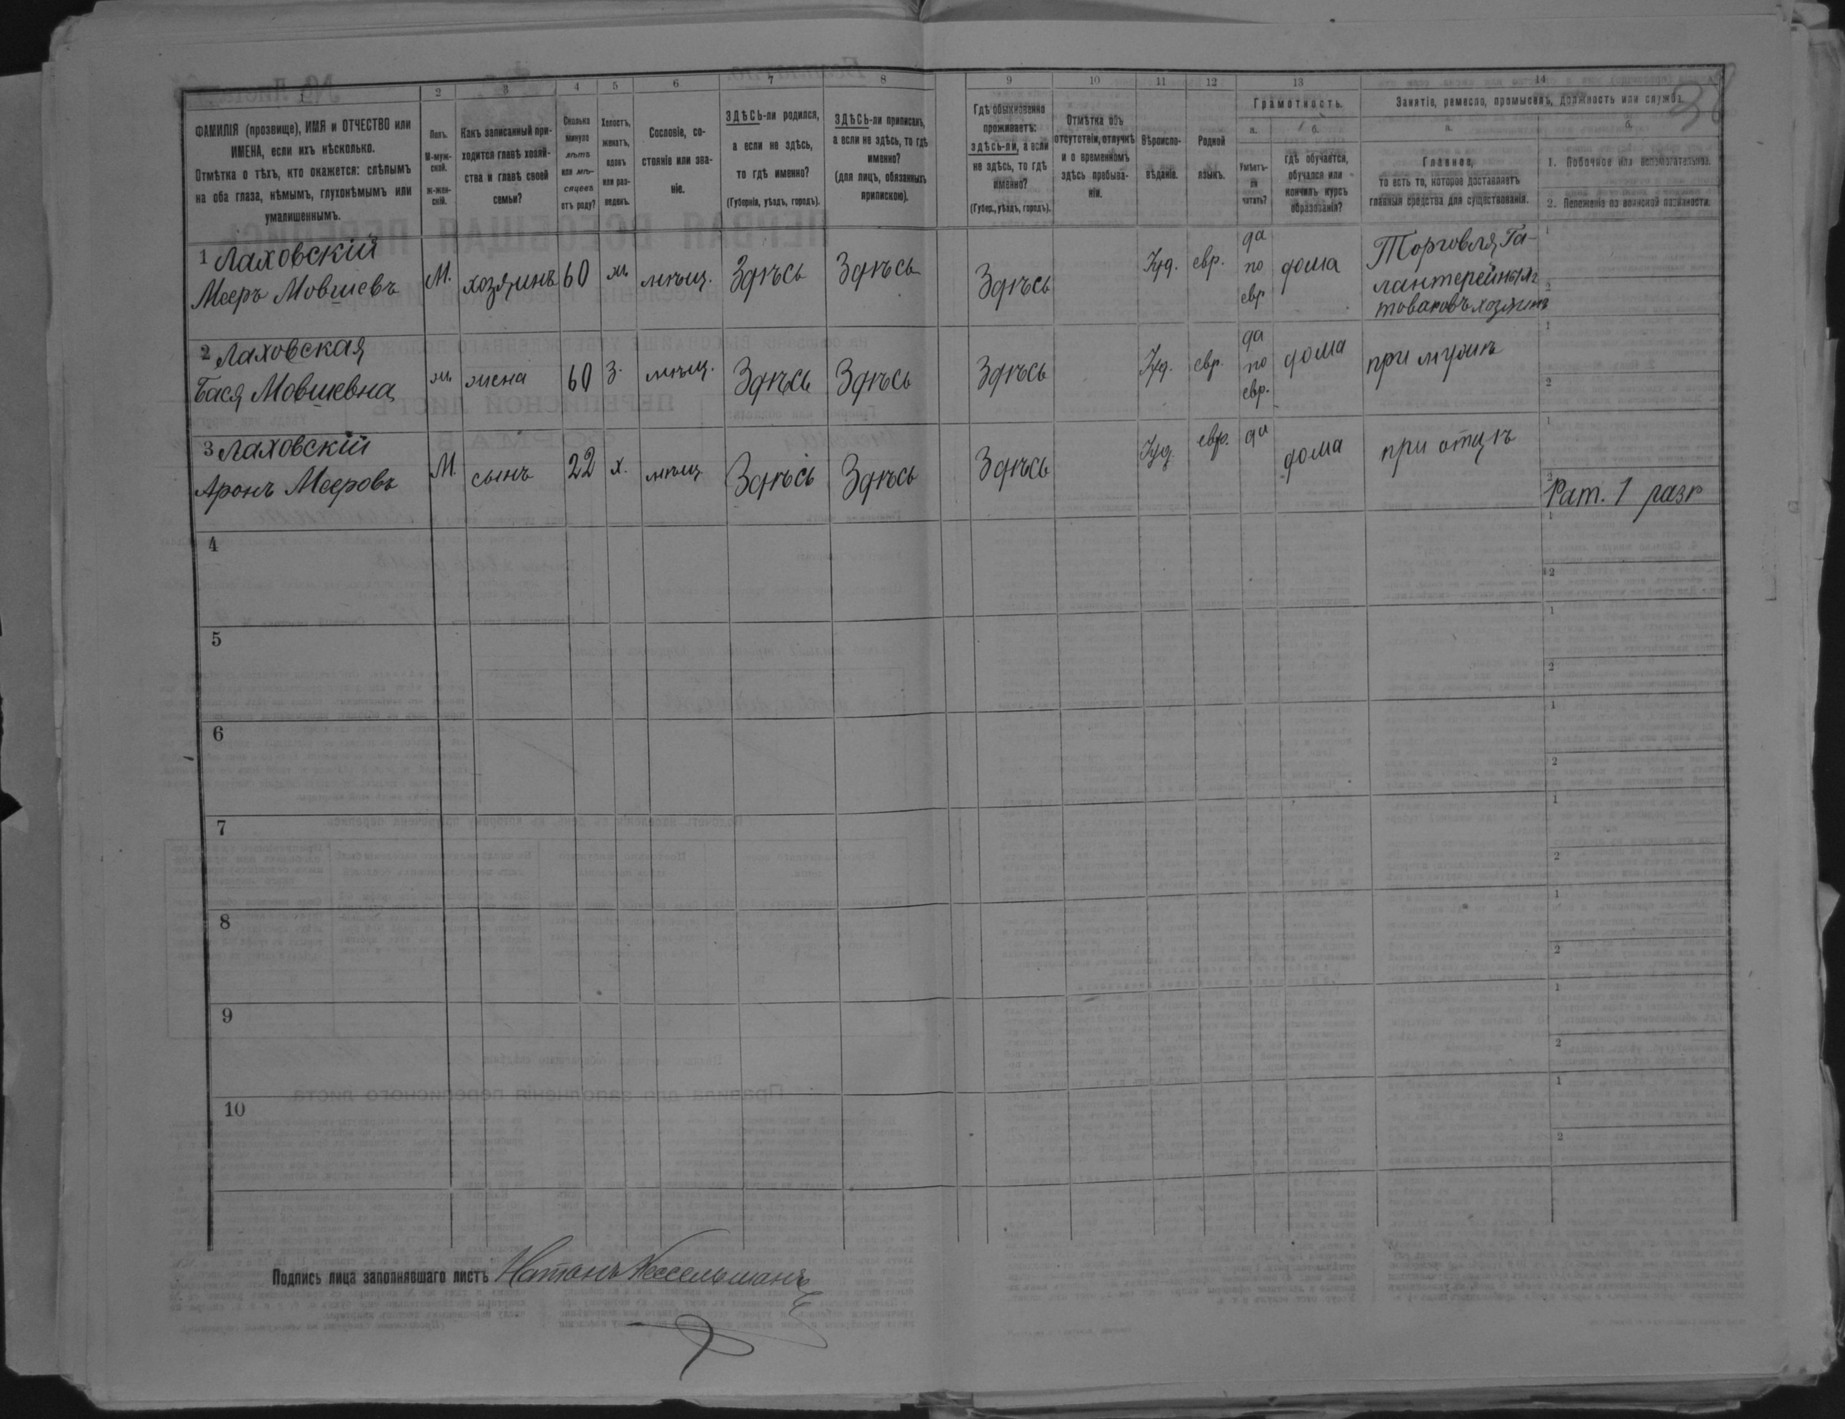 1 2 3 4 5 6 7 8 9 10 11 12 13 14
38
ФАМИЛІЯ (прозвище), ИМЯ и ОТЧЕСТВО или
ИМЕНА, если ихъ нѣсколько.
Отмѣтка о тѣхъ, кто окажется: слѣпымъ
на оба глаза, нѣмымъ, глухонѣмымъ или
умалишеннымъ.
Полъ.
М-муж-
ской.
Ж-жен-
скій.
Какъ записанный при-
ходится главѣ хозяй-
ства и главѣ своей
семьи?
Сколько
минуло
лѣтъ
или мѣ-
сяцевъ
отъ роду?
Холостъ,
женатъ,
вдовъ
или раз-
веденъ.
Сословіе, со-
стояніе или зва-
ніе.
ЗДѢСЬ-ли родился,
а если не здѣсь,
то гдѣ именно?
(Губернія, уѣздъ, городъ).
ЗДѢСЬ-ли приписанъ,
а если не здѣсь, то гдѣ
именно?
(для лицъ, обязанныхъ
припискою).
Гдѣ обыкновенно
проживаетъ:
здѣсь-ли, а если
не здѣсь, то гдѣ
именно?
(Губер., уѣздъ, городъ).
Отмѣтка объ
отсутствіи, отлучкѣ
и о временномъ
здѣсь пребыва-
ніи.
Вѣроиспо-
вѣданіе.
Родной
языкъ.
Грамотность.
а.
б.
Умѣетъ-
ли
читать?
гдѣ обучается,
обучался или
кончилъ курсъ
образованія?
Занятіе, ремесло, промыселъ, должность или служба.
а.
б.
Главное,
то есть то, которое доставляетъ
главныя средства для существованія.
1. Побочное или вспомогательное.
2. Положеніе по воинской повинности.
1 Лаховскій
Мееръ Мовшевъ
М.
хозяинъ
60
ж
мѣщ.
Здѣсь
Здѣсь
Здѣсь
Іуд.
евр.
да
по
евр
дома
Торговля Га-
лантерейнымъ
товаромъ хозяинъ
1
2
2 Лаховская
Бася Мовшевна
ж
жена
60
З.
мѣщ.
Здѣсь
Здѣсь
Здѣсь
Іуд.
евр.
да
по
евр.
дома
при мужѣ
1
2
3 Лаховскій
Аронъ Мееровъ
М.
сынъ
22
х.
мѣщ.
Здѣсь
Здѣсь
Здѣсь
Іуд.
евр.
да
дома
при отцѣ
1
2
Рат. 1 разр
4
1
2
5
1
2
6
1
2
7
1
2
8
1
2
9
1
2
10
1
2
Подпись лица заполнявшаго листъ Натанъ Кессельманъ